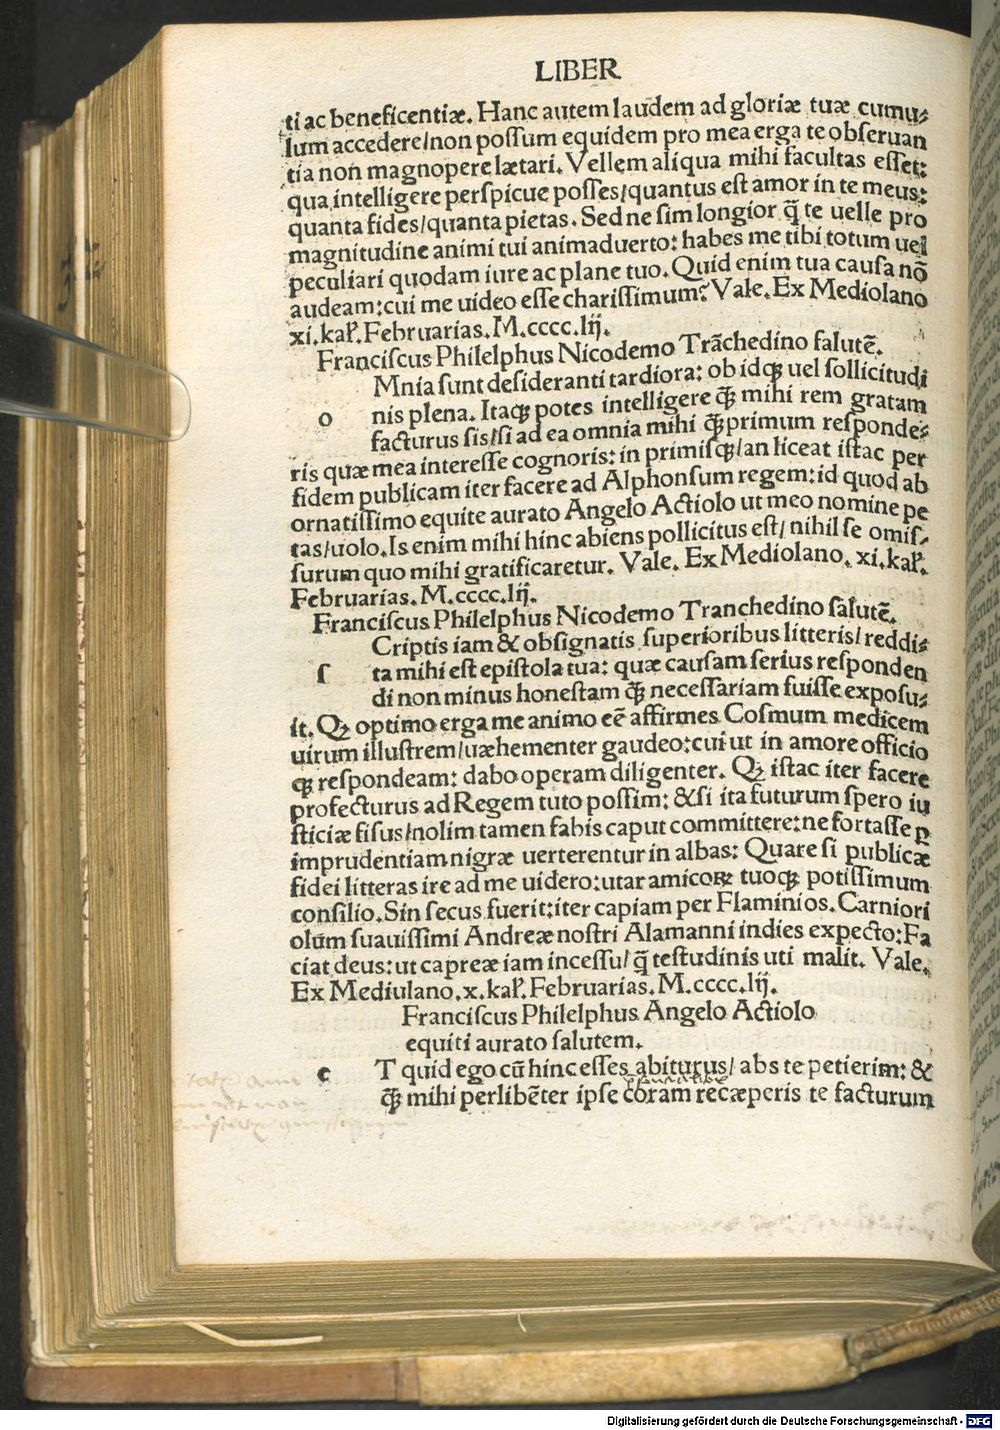 LIBER
ti ac beneficentiæ. Hanc autem laudem ad gloriæ tuæ cumu⸗
lum accedere/non possum equidem pro mea erga te obseruan
tia non magnopere lætari. Vellem aliqua mihi facultas esset:
qua intelligere perspicue posses/quantus est amor in te meus:
quanta fides/quanta pietas. Sed ne sim longior q̃ te uelle pro
magnitudine animi tui animaduerto: habes me tibi totum uel
peculiari quodam iure ac plane tuo. Quid enim tua causa nõ
audeam:cui me uideo esse charissimum? Vale. Ex Mediolano
xi. kal̃. Februarias. M.cccc.lij.
Franciscus Philelphus Nicodemo Trãchedino salutẽ.
Mnia sunt desideranti tardiora: ob idqꝫ uel sollicitudi
o nis plena. Itaqꝫ potes intelligere qꝫ̃ mihi rem gratam
facturus sis/si ad ea omnia mihi qꝫ̃primum responde⸗
ris quæ mea interesse cognoris: in primisqꝫ/an liceat istac per
fidem publicam iter facere ad Alphonsum regem: id quod ab
ornatissimo equite aurato Angelo Actiolo ut meo nomine pe
tas/uolo. Is enim mihi hinc abiens pollicitus est/ nihil se omis⸗
surum quo mihi gratificaretur. Vale. Ex Mediolano. xi. kal̃.
Februarias. M.cccc.lij.
Franciscus Philelphus Nicodemo Tranchedino salutẽ.
Criptis iam & obsignatis superioribus litteris/ reddi⸗
s ta mihi est epistola tua: quæ causam serius responden
di non minus honestam qꝫ̃ necessariam fuisse exposu⸗
it. Qꝫ optimo erga me animo eẽ affirmes Cosmum medicem
uirum illustrem/uæhementer gaudeo: cui ut in amore officio
qꝫ respondeam: dabo operam diligenter. Qꝫ istac iter facere
profecturus ad Regem tuto possim: & si ita futurum spero iu
sticiæ fisus/nolim tamen fabis caput committere: ne fortasse ꝑ
imprudentiam nigræ uerterentur in albas: Quare si publicæ
fidei litteras ire ad me uidero: utar amicoꝝ tuoqꝫ potissimum
consilio. Sin secus fuerit: iter capiam per Flaminios. Carniori
olum suauissimi Andreæ nostri Alamanni indies expecto: Fa
ciat deus: ut capreæ iam incessu/ q̃ testudinis uti malit. Vale.
Ex Mediulano. x. kal̃. Februarias. M.cccc.lij.
Franciscus Philelphus Angelo Actiolo
equiti aurato salutem.
e T quid ego cũ hinc esses abiturus/ abs te petierim: &
qꝫ̃ mihi perlibẽter ipse coram recæperis te facturum
Digitalisierung gefördert durch die Deutsche Forschungsgemeinschaft - DFG